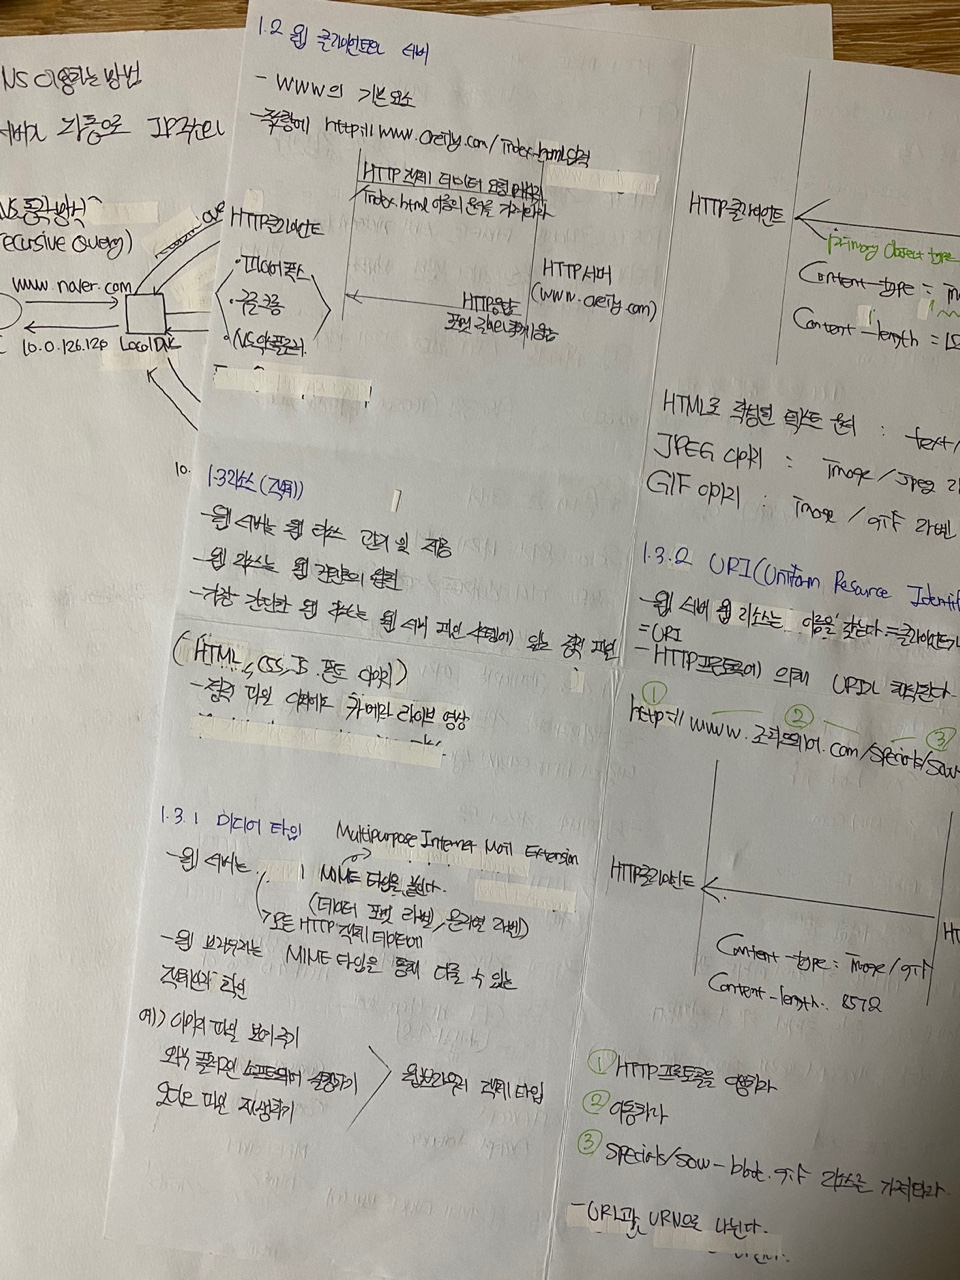 NS 이용하는 방법
서버가 자동으로 IP주소
NS 동작방식
recursive Query)
www.naver.com
10.0.126.12p Local DNS
10.
1.2 웹 클라이언트와 서버
- WWW의 기본요소
http://www.oreilly.com/index.html입력
HTTP 객체 데이터 요청
index.html 이름의 문서를 가져와라
HTTP클라이언트
· 파이어폭스
· 구글크롬
· 익스플로러
HTTP서버
(www.oreilly.com)
HTTP응답
1.3 리소스 (객체)
- 웹 서버는 웹 리소스 관리 및 제공
- 웹 리소스는 웹 컨텐츠의 원천
- 가장 간단한 웹 리소스는 웹 서버 파일 시스템에 있는 정적 파일
(HTML, CSS, JS, 폰트, 이미지)
- 정적 파일 이외에도 카메라 라이브 영상
1.3.1 미디어 타입 Multipurpose Internet Mail Extension
- 웹 서버는 MIME 타입을 붙인다.
(데이터 포맷 라벨, 문자열 라벨)
모든 HTTP 객체 데이터에
- 웹 브라우저는 MIME 타입을 통해 다룰 수 있는
객체인지 확인
예) 이미지 파일 보여주기
외부 플러그인 소프트웨어 실행하기
오디오 파일 재생하기
웹브라우저 객체 타입
HTTP클라이언트
primary object type
Content-type = im
Content-length = 15
HTML로 작성된 텍스트 문서 : text/
JPEG 이미지 : image/jpeg 라
GIF 이미지 : image/gif 라벨
1.3.2 URI(Uniform Resource Identif
- 웹 서버 웹 리소스는 이름을 갖는다 = 클라이언트가
= URI
- HTTP프로토콜에 의해 URI로
① ② ③
http://www.조의하드웨어.com/specials/saw
HTTP클라이언트
HT
Content-type: image/gif
Content-length: 8572
① HTTP프로토콜을 이용하라
② 이동하라
③ specials/saw-blade.gif 리소스를 가져와라
- URL과 URN으로 나뉜다.